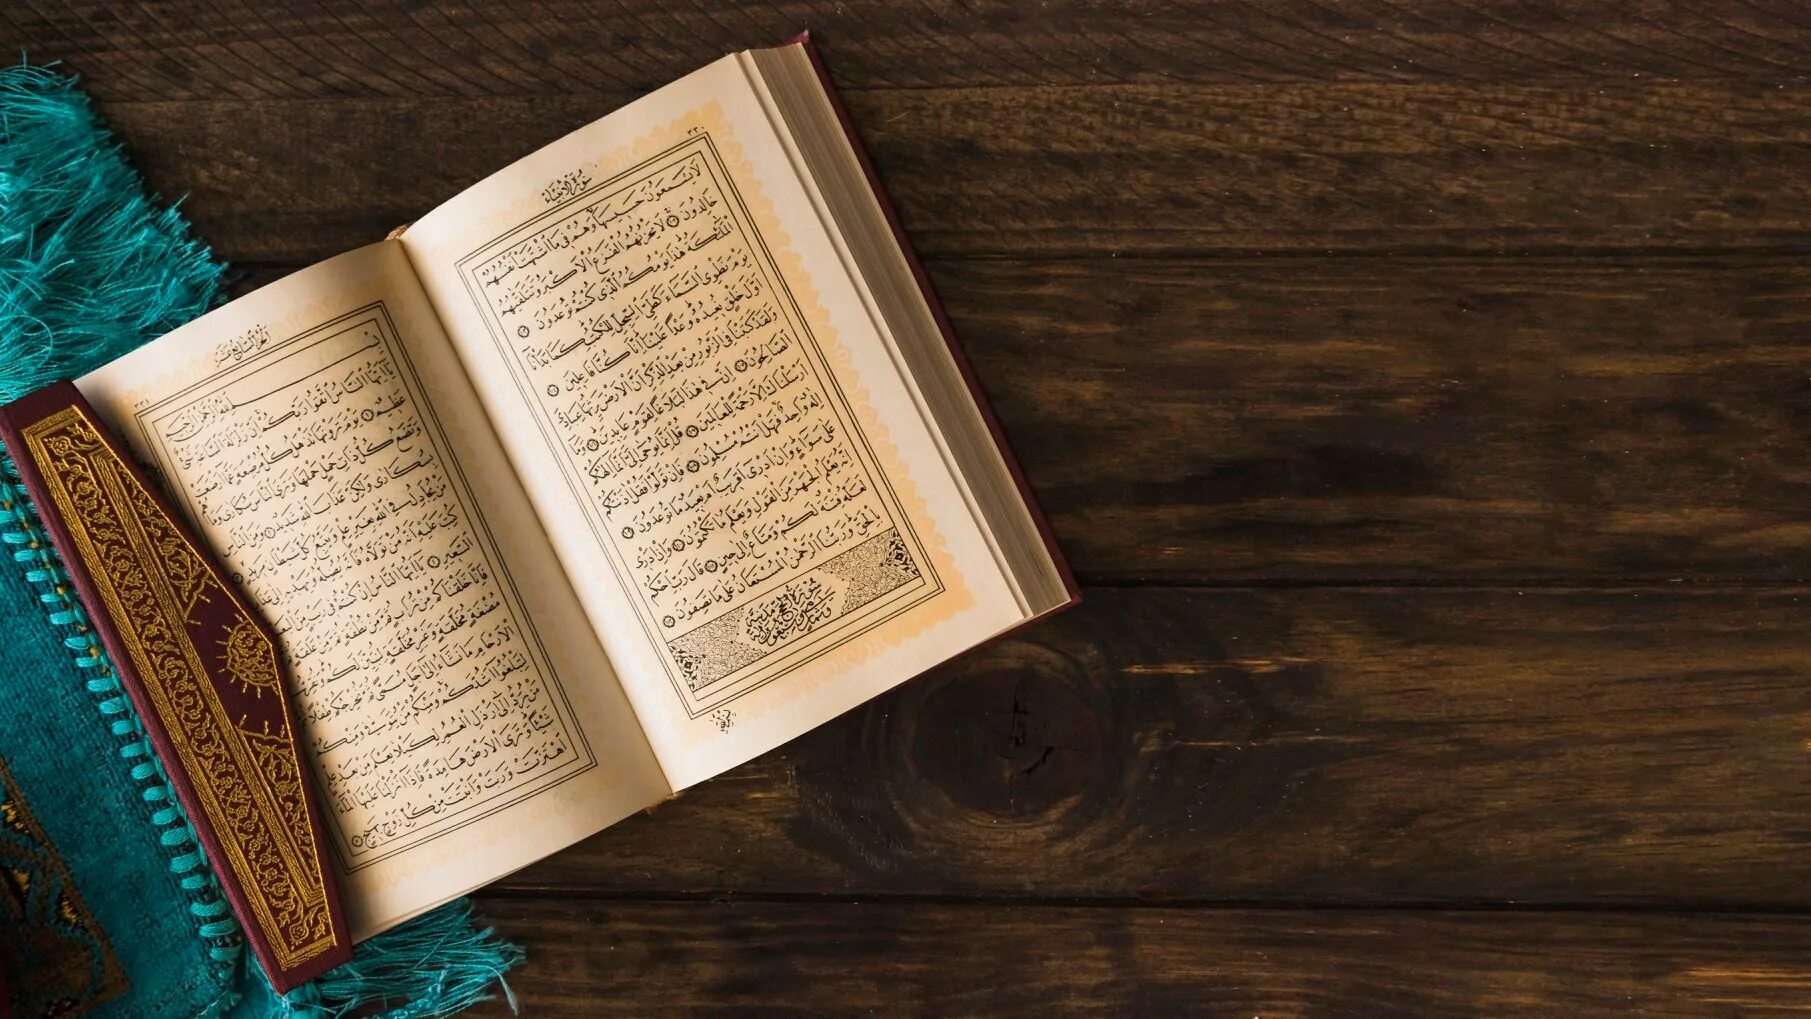 ٣٣٠
سُورَةُ الْأَنْبِيَاءِ
لَا يَسْمَعُونَ حَسِيسَهَا وَهُمْ فِي مَا اشْتَهَتْ أَنْفُسُهُمْ
خَالِدُونَ لَا يَحْزُنُهُمُ الْفَزَعُ الْأَكْبَرُ وَتَتَلَقَّيهُمُ
الْمَلٰئِكَةُ هٰذَا يَوْمُكُمُ الَّذِي كُنْتُمْ تُوعَدُونَ
يَوْمَ نَطْوِي السَّمَاءَ كَطَيِّ السِّجِلِّ لِلْكُتُبِ كَمَا بَدَأْنَا
أَوَّلَ خَلْقٍ نُعِيدُهُ وَعْدًا عَلَيْنَا إِنَّا كُنَّا فَاعِلِينَ
وَلَقَدْ كَتَبْنَا فِي الزَّبُورِ مِنْ بَعْدِ الذِّكْرِ أَنَّ الْأَرْضَ يَرِثُهَا عِبَادِيَ
الصَّالِحُونَ إِنَّ فِي هٰذَا لَبَلَاغًا لِقَوْمٍ عَابِدِينَ وَمَا
أَرْسَلْنَاكَ إِلَّا رَحْمَةً لِلْعَالَمِينَ قُلْ إِنَّمَا يُوحَى إِلَيَّ أَنَّمَا إِلٰهُكُمْ
إِلٰهٌ وَاحِدٌ فَهَلْ أَنْتُمْ مُسْلِمُونَ فَإِنْ تَوَلَّوْا فَقُلْ آذَنْتُكُمْ
عَلَى سَوَاءٍ وَإِنْ أَدْرِي أَقَرِيبٌ أَمْ بَعِيدٌ مَا تُوعَدُونَ
إِنَّهُ يَعْلَمُ الْجَهْرَ مِنَ الْقَوْلِ وَيَعْلَمُ مَا تَكْتُمُونَ وَإِنْ أَدْرِي
لَعَلَّهُ فِتْنَةٌ لَكُمْ وَمَتَاعٌ إِلَى حِينٍ قَالَ رَبِّ احْكُمْ
بِالْحَقِّ وَرَبُّنَا الرَّحْمٰنُ الْمُسْتَعَانُ عَلَى مَا تَصِفُونَ
سُورَةُ الْحَجِّ مَدَنِيَّةٌ
الجزء السابع عشر
٣٣١
بِسْمِ اللّٰهِ الرَّحْمٰنِ الرَّحِيمِ
يَا أَيُّهَا النَّاسُ اتَّقُوا رَبَّكُمْ إِنَّ زَلْزَلَةَ السَّاعَةِ شَيْءٌ
عَظِيمٌ يَوْمَ تَرَوْنَهَا تَذْهَلُ كُلُّ مُرْضِعَةٍ عَمَّا أَرْضَعَتْ
وَتَضَعُ كُلُّ ذَاتِ حَمْلٍ حَمْلَهَا وَتَرَى النَّاسَ سُكَارَى وَمَا هُمْ
بِسُكَارَى وَلٰكِنَّ عَذَابَ اللّٰهِ شَدِيدٌ وَمِنَ النَّاسِ
مَنْ يُجَادِلُ فِي اللّٰهِ بِغَيْرِ عِلْمٍ وَيَتَّبِعُ كُلَّ شَيْطَانٍ مَرِيدٍ
كُتِبَ عَلَيْهِ أَنَّهُ مَنْ تَوَلَّاهُ فَأَنَّهُ يُضِلُّهُ وَيَهْدِيهِ إِلَى عَذَابِ
السَّعِيرِ يَا أَيُّهَا النَّاسُ إِنْ كُنْتُمْ فِي رَيْبٍ مِنَ
فَإِنَّا خَلَقْنَاكُمْ مِنْ تُرَابٍ ثُمَّ مِنْ نُطْفَةٍ ثُمَّ مِنْ عَلَقَةٍ
مُضْغَةٍ مُخَلَّقَةٍ وَغَيْرِ مُخَلَّقَةٍ لِنُبَيِّنَ لَكُمْ وَنُقِرُّ
الْأَرْحَامِ مَا نَشَاءُ إِلَى أَجَلٍ مُسَمًّى ثُمَّ نُخْرِجُكُمْ طِفْلًا
لِتَبْلُغُوا أَشُدَّكُمْ وَمِنْكُمْ مَنْ يُتَوَفَّى وَمِنْكُمْ
مَنْ يُرَدُّ إِلَى أَرْذَلِ الْعُمُرِ لِكَيْلَا يَعْلَمَ مِنْ بَعْدِ عِلْمٍ
شَيْئًا وَتَرَى الْأَرْضَ هَامِدَةً فَإِذَا أَنْزَلْنَا عَلَيْهَا الْمَاءَ
اهْتَزَّتْ وَرَبَتْ وَأَنْبَتَتْ مِنْ كُلِّ زَوْجٍ بَهِيجٍ